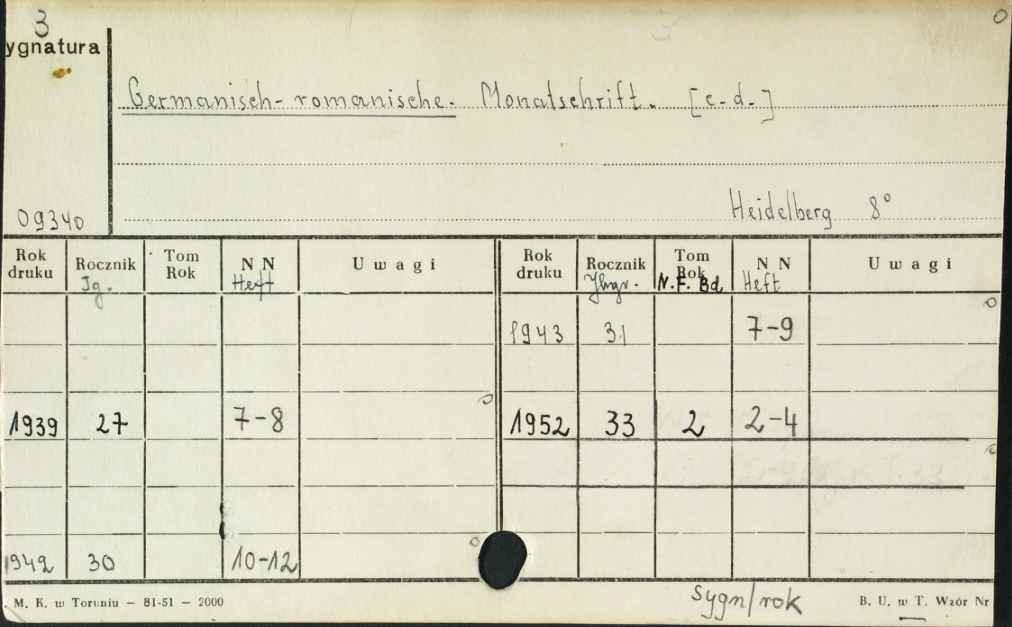 3
ygnatura
Germanisch-romanische. Monatschrift. [c.d.]
Heidelberg 8°
09340
Rok druku Rocznik Tom Rok NN Uwagi Rok druku Rocznik Tom Rok NN Uwagi
Jg. Heft Jhgr. N.F. Bd Heft
1943 31 7-9
1939 27 7-8 1952 33 2 2-4
1942 30 10-12
M. K. w Toruniu — 81-51 — 2000 sygn/rok B. U. w T. Wzór Nr